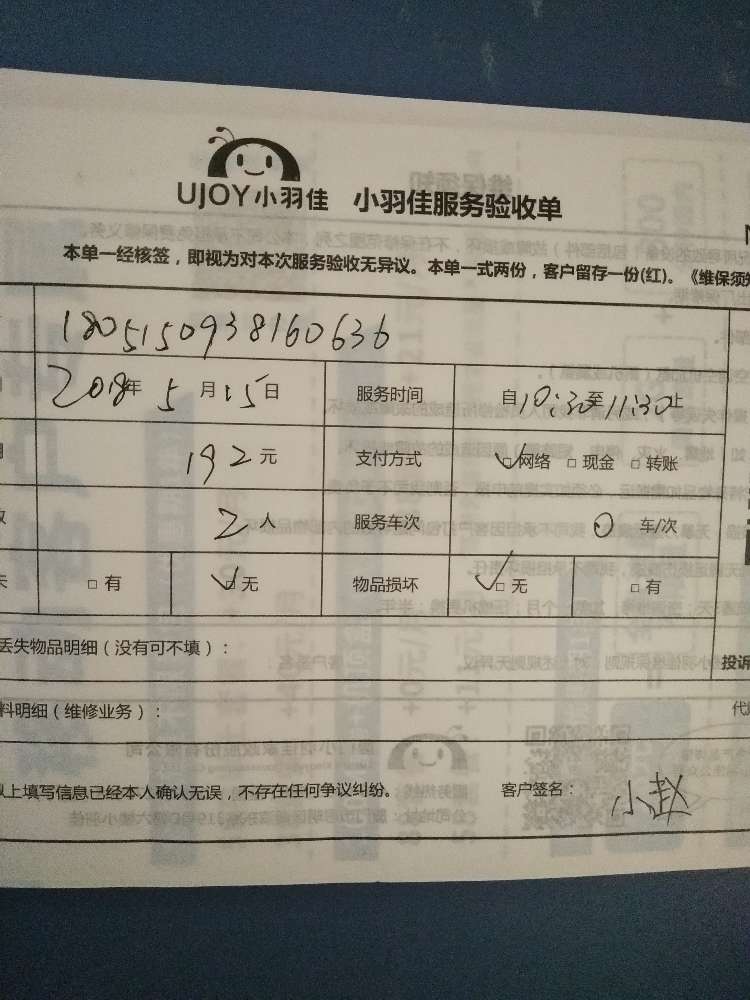 UJOY小羽佳 小羽佳服务验收单
本单一经核签，即视为对本次服务验收无异议。本单一式两份，客户留存一份(红)。《维保须知
1805150938160636
2018年 5 月 15 日 服务时间 自10:30至11:30止
192元 支付方式 网络 现金 转账
2人 服务车次 0 车/次
有 无 物品损坏 无 有
丢失物品明细（没有可不填）：
投诉
料明细（维修业务）：
以上填写信息已经本人确认无误，不存在任何争议纠纷。 客户签名： 小赵